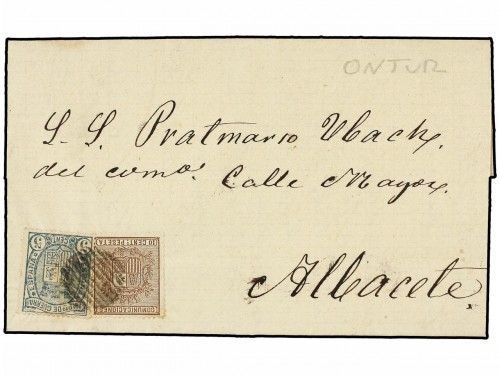 ONTUR
S. S. Pratmarso Ubach.
del comº. Calle Mayor.
Albacete
10 CENT. PESETA
COMUNICACIONES
ESPAÑA
5 CENT
DE GUERRA